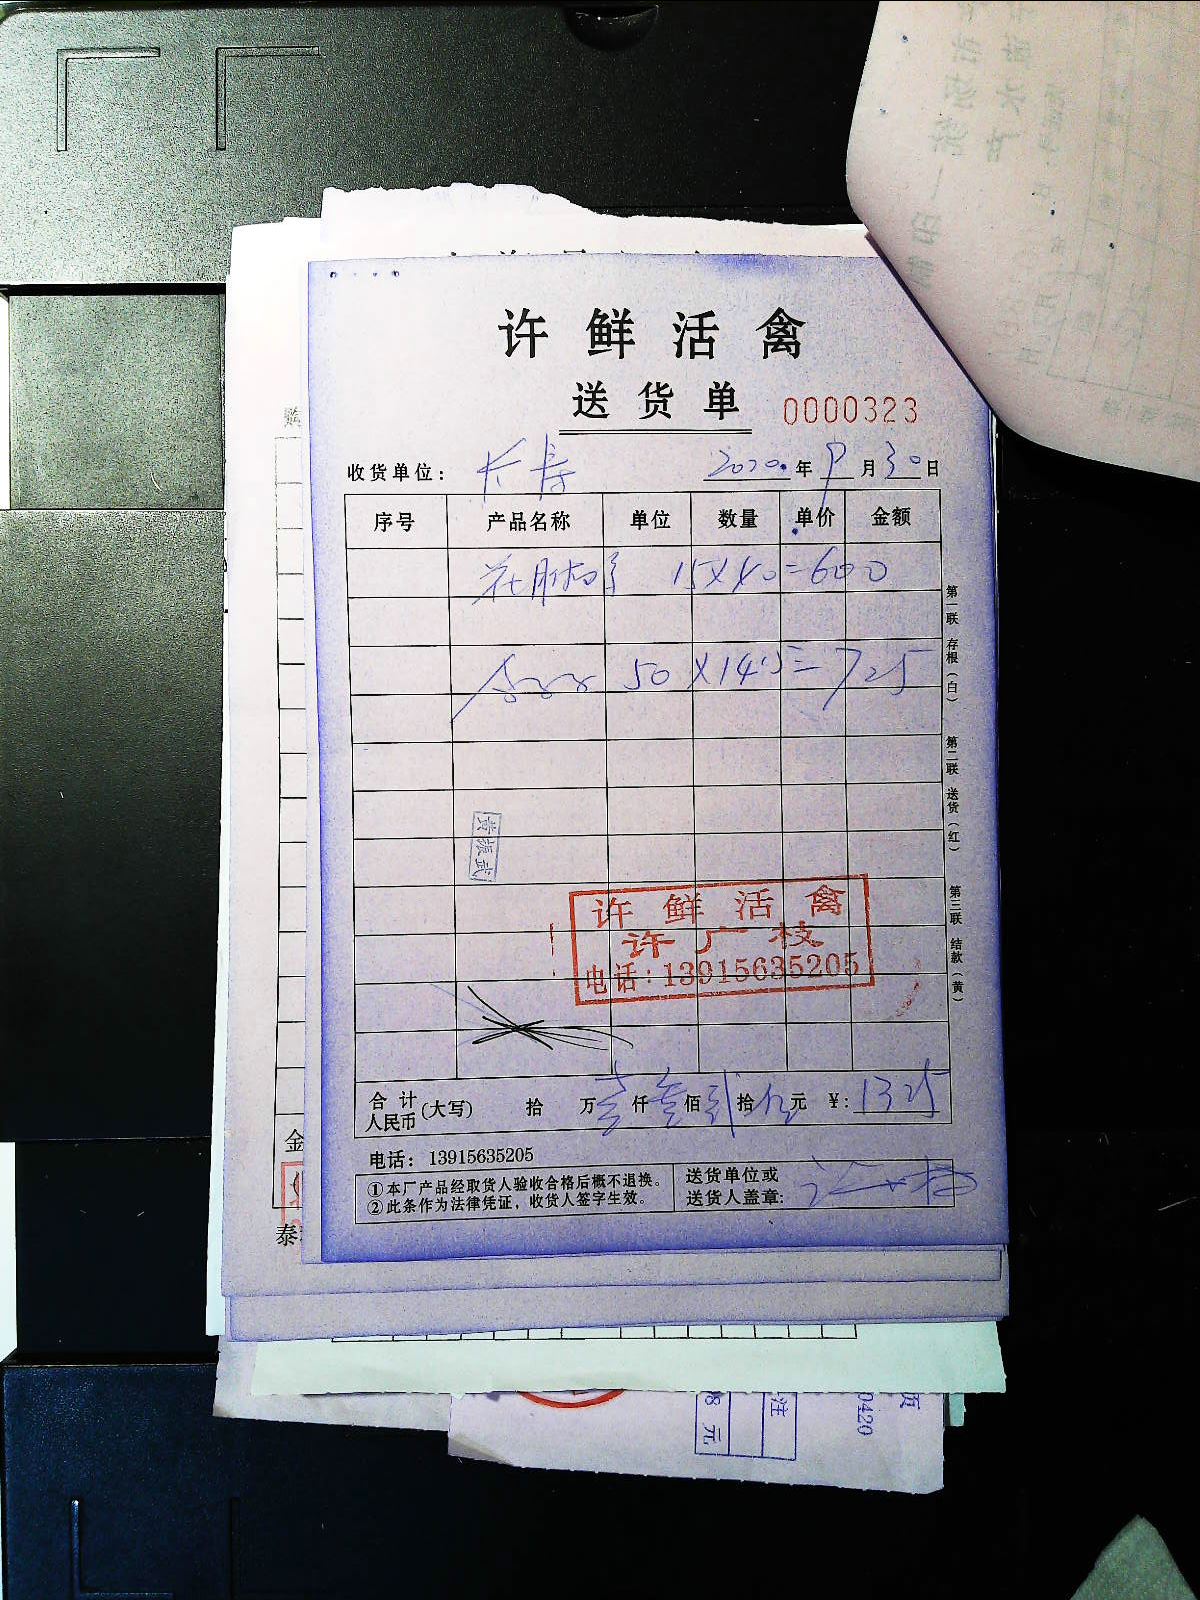 许鲜活禽
送货单 0000323
收货单位: 长寿 2020年9月30日
序号 产品名称 单位 数量 单价 金额
15×40=600
50×14.5=725
第一联 存根(白)
第二联 送货(红)
第三联 结款(黄)
黄振武
许鲜活禽
许广枝
电话:13915635205
合计人民币(大写) 拾 万壹仟叁佰贰拾伍元 ¥:1325
电话: 13915635205
①本厂产品经取货人验收合格后概不退换。
②此条作为法律凭证,收货人签字生效。
送货单位或
送货人盖章:
购
金
泰
8元
注
0420
页